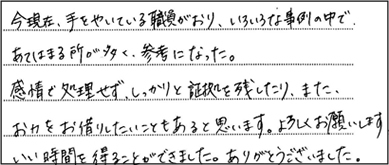 今現在、手をやいている職員がおり、いろいろな事例の中で、
あてはまる所が多く、参考になった。
感情で処理せず、しっかりと証拠を残したり、また、
お力をお借りしたいこともあると思います。よろしくお願いします
いい時間を得ることができました。ありがとうございました。